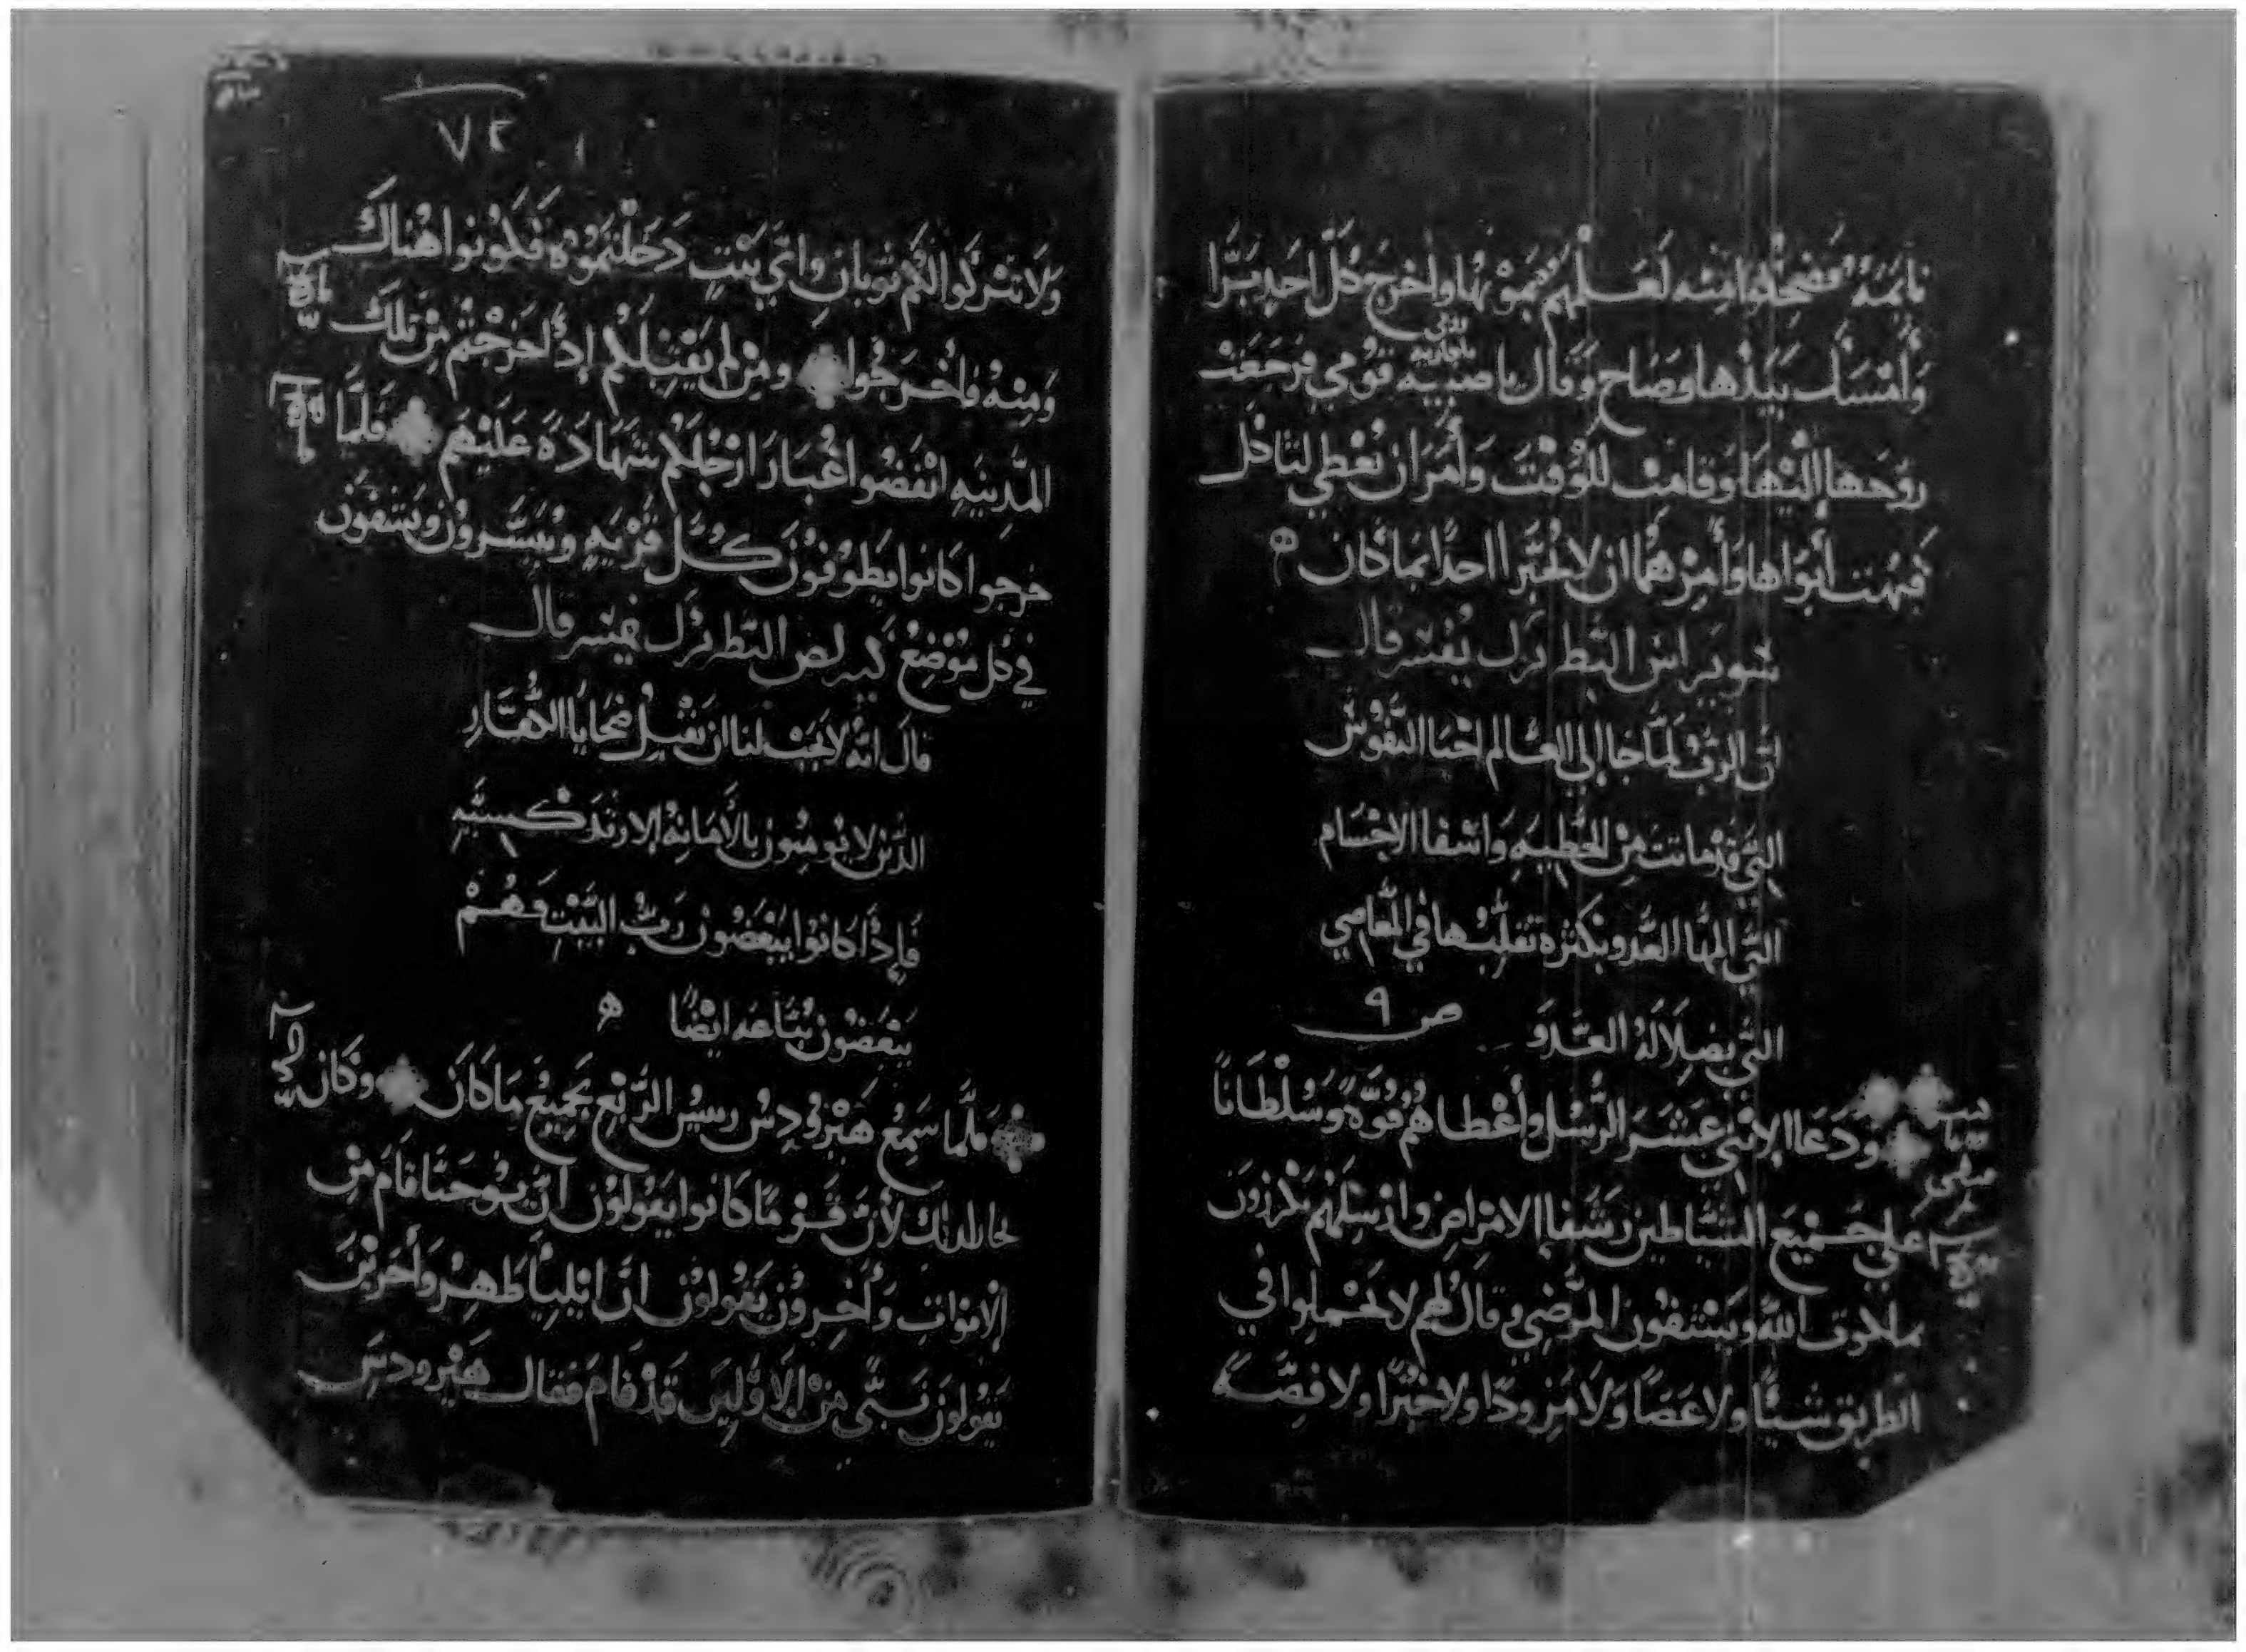 نايمَهُ فضحكوا منه لعلمهم بموتها واخرج كل احد برَّا
وأمسك بيدها وصاح وقال يا صبيه قومي فرجعت
روحها إليها وقامت للوقت وأمر ان تعطي لتاكل
فبهت أبواها وأمرهما ان لا يخبرا احداً بما كان ه
قال
ان الرب لمَّا جا الي العالم احيا النفوس
التي قد ماتت من الخطيه واشفا الاجسام
التي العدو بكثره تقلبها في المعاصي
التي بضلاله العدو
ص ٩
ودعا الإثني عشر الرسل وأعطاهم قوَّةً وسُلْطَاناً
على جميع الشياطين وشفا الامراض وارسلهم يكرزون
بملكوت الله ويشفون المرضي وقال لهم لا تحملوا في
الطريق شياً ولا عصاً ولا مزوداً ولا خبزاً ولا فضَّه
٧٢
ولا تتركوا لكم ثوبان وايّ بيتٍ دخلتموه فكونوا هناك
ومنه واخرجوا ومن لم يقبلكم إذا خرجتم من تلك
المدينه انفضوا غبار ارجلكم شهاده عليهم فلمَّا
خرجوا كانوا يطوفون كل قريهٍ ويبشرون ويشفون
في كل موضع قال
قال انه لا يجب لنا ان
الذين لا يومنون بالأمانه الارتدكسيه
فإذا كانوا يبغضون رب البيت فهم
يبغضون ايضاً ه
فلمَّا سمع هيرودس رييس الربع بجميع ما كان وكان
لأن قوماً كانوا يقولون انّ يوحنا قام من
الاموات وأخرون يقولون انّ ايلياً ظهر وأخرين
يقولون نبيّ من الاوّلين قد قام فقال هيرودس